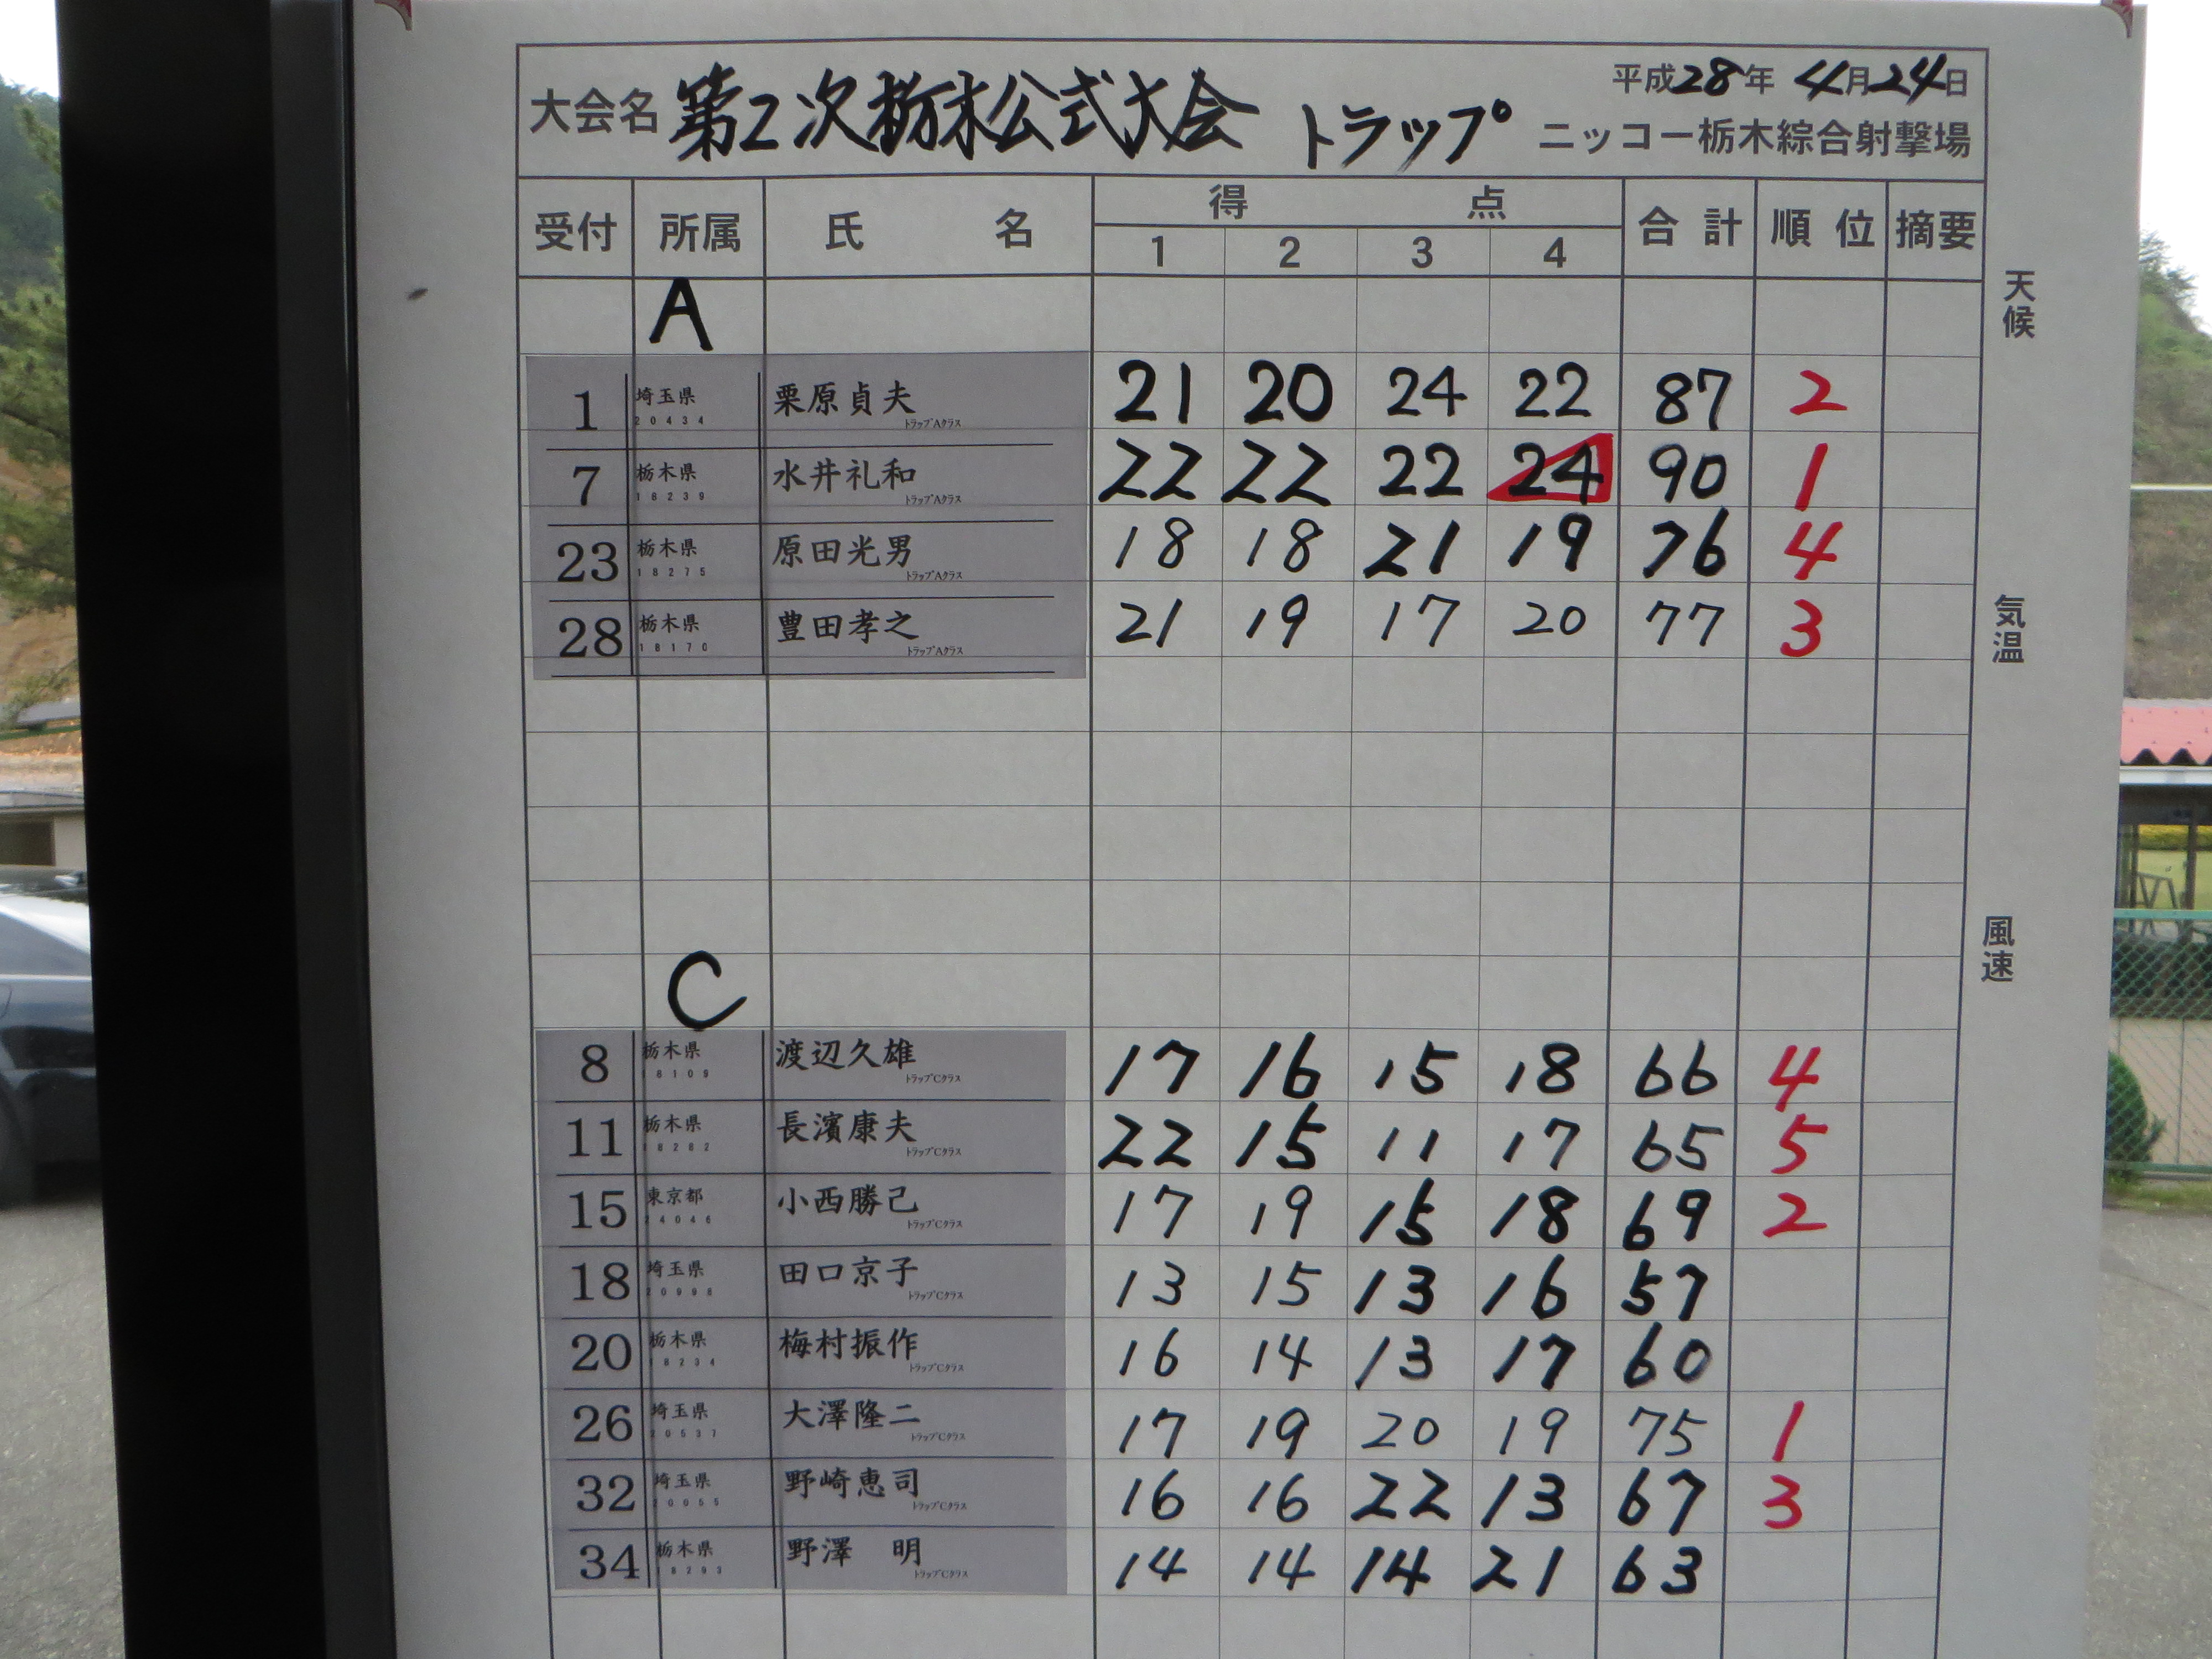 平成28年 4月24日
大会名 第2次栃木公式大会 トラップ ニッコー栃木綜合射撃場
受付 所属 氏名 得点 合計 順位 摘要
1 2 3 4
天候
A
1 埼玉県 栗原貞夫 21 20 24 22 87 2
20434 トラップAクラス
7 栃木県 水井礼和 22 22 22 24 90 1
18239 トラップAクラス
23 栃木県 原田光男 18 18 21 19 76 4
18275 トラップAクラス
28 栃木県 豊田孝之 21 19 17 20 77 3
18170 トラップAクラス
気温
風速
C
8 栃木県 渡辺久雄 17 16 15 18 66 4
18109 トラップCクラス
11 栃木県 長濱康夫 22 15 11 17 65 5
18282 トラップCクラス
15 東京都 小西勝己 17 19 15 18 69 2
24046 トラップCクラス
18 埼玉県 田口京子 13 15 13 16 57
20998 トラップCクラス
20 栃木県 梅村振作 16 14 13 17 60
18234 トラップCクラス
26 埼玉県 大澤隆二 17 19 20 19 75 1
20537 トラップCクラス
32 埼玉県 野崎恵司 16 16 22 13 67 3
トラップCクラス
34 栃木県 野澤 明 14 14 14 21 63
18293 トラップCクラス